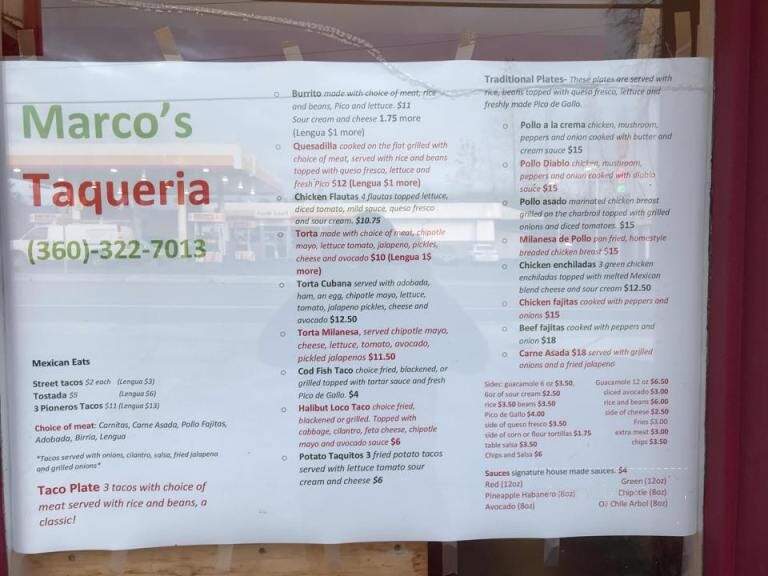 Marco's
Taqueria
(360)-322-7013
Mexican Eats
Street tacos $2 each (Lengua $3)
Tostada $5 (Lengua $6)
3 Pioneros Tacos $11 (Lengua $13)
Choice of meat: Carnitas, Carne Asada, Pollo Fajitas,
Adobada, Birria, Lengua
*Tacos served with onions, cilantro, salsa, fried jalapeno
and grilled onions*
Taco Plate 3 tacos with choice of
meat served with rice and beans, a
classic!
Burrito made with choice of meat, rice
and beans, Pico and lettuce. $11
Sour cream and cheese 1.75 more
(Lengua $1 more)
Quesadilla cooked on the flat grilled with
choice of meat, served with rice and beans
topped with queso fresco, lettuce and
fresh Pico $12 (Lengua $1 more)
Chicken Flautas 4 flautas topped lettuce,
diced tomato, mild sauce, queso fresco
and sour cream. $10.75
Torta made with choice of meat, chipotle
mayo, lettuce tomato, jalapeno, pickles,
cheese and avocado $10 (Lengua 1$
more)
Torta Cubana served with adobada,
ham, an egg, chipotle mayo, lettuce,
tomato, jalapeno pickles, cheese and
avocado $12.50
Torta Milanesa, served chipotle mayo,
cheese, lettuce, tomato, avocado,
pickled jalapenos $11.50
Cod Fish Taco choice fried, blackened, or
grilled topped with tartar sauce and fresh
Pico de Gallo. $4
Halibut Loco Taco choice fried,
blackened or grilled. Topped with
cabbage, cilantro, feto cheese, chipotle
mayo and avocado sauce $6
Potato Taquitos 3 fried potato tacos
served with lettuce tomato sour
cream and cheese $6
Traditional Plates- These plates are served with
rice, beans topped with queso fresco, lettuce and
freshly made Pico de Gallo.
Pollo a la crema chicken, mushroom,
peppers and onion cooked with butter and
cream sauce $15
Pollo Diablo chicken, mushroom,
peppers and onion cooked with diablo
sauce $15
Pollo asado marinated chicken breast
grilled on the charbroil topped with grilled
onions and diced tomatoes. $15
Milanesa de Pollo pan fried, homestyle
breaded chicken breast $15
Chicken enchiladas 3 green chicken
enchiladas topped with melted Mexican
blend cheese and sour cream $12.50
Chicken fajitas cooked with peppers and
onions $15
Beef fajitas cooked with peppers and
onion $18
Carne Asada $18 served with grilled
onions and a fried jalapeno
Sides: guacamole 6 oz $3.50,
6oz of sour cream $2.50
rice $3.50 beans $3.50
Pico de Gallo $4.00
side of queso fresco $3.50
side of corn or flour tortillas $1.75
table salsa $3.50
Chips and Salsa $6
Guacamole 12 oz $6.50
sliced avocado $3.00
rice and beans $6.00
side of cheese $2.50
Fries $3.00
extra meat $3.00
chips $3.50
Sauces signature house made sauces. $4
Red (12oz) Green (12oz)
Pineapple Habanero (8oz) Chipotle (8oz)
Avocado (8oz) Oil Chile Arbol (8oz)